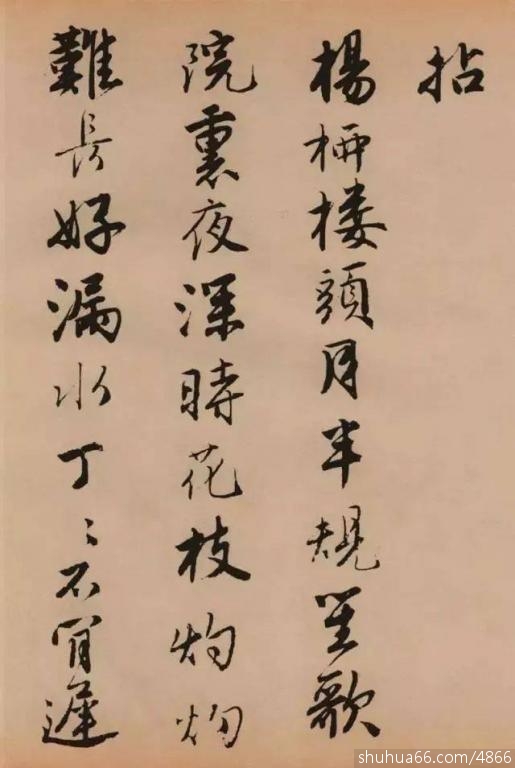 拈
楊栁楼頭月半規笙歌
院裏夜深時花枝灼灼
難長好漏水丁〻不肎遲
shuhua66.com/4866